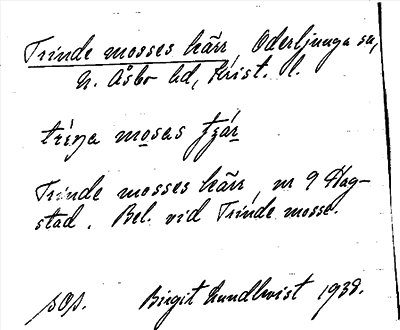 Trinde mosses kärr, Oderljunga sn,
N. Åsbo hd, Krist. l.
mosas
Trinde mosses kärr, nr 9 Hag-
stad. Bel. vid Trinde mosse.
Birgit Lundkvist 1938.